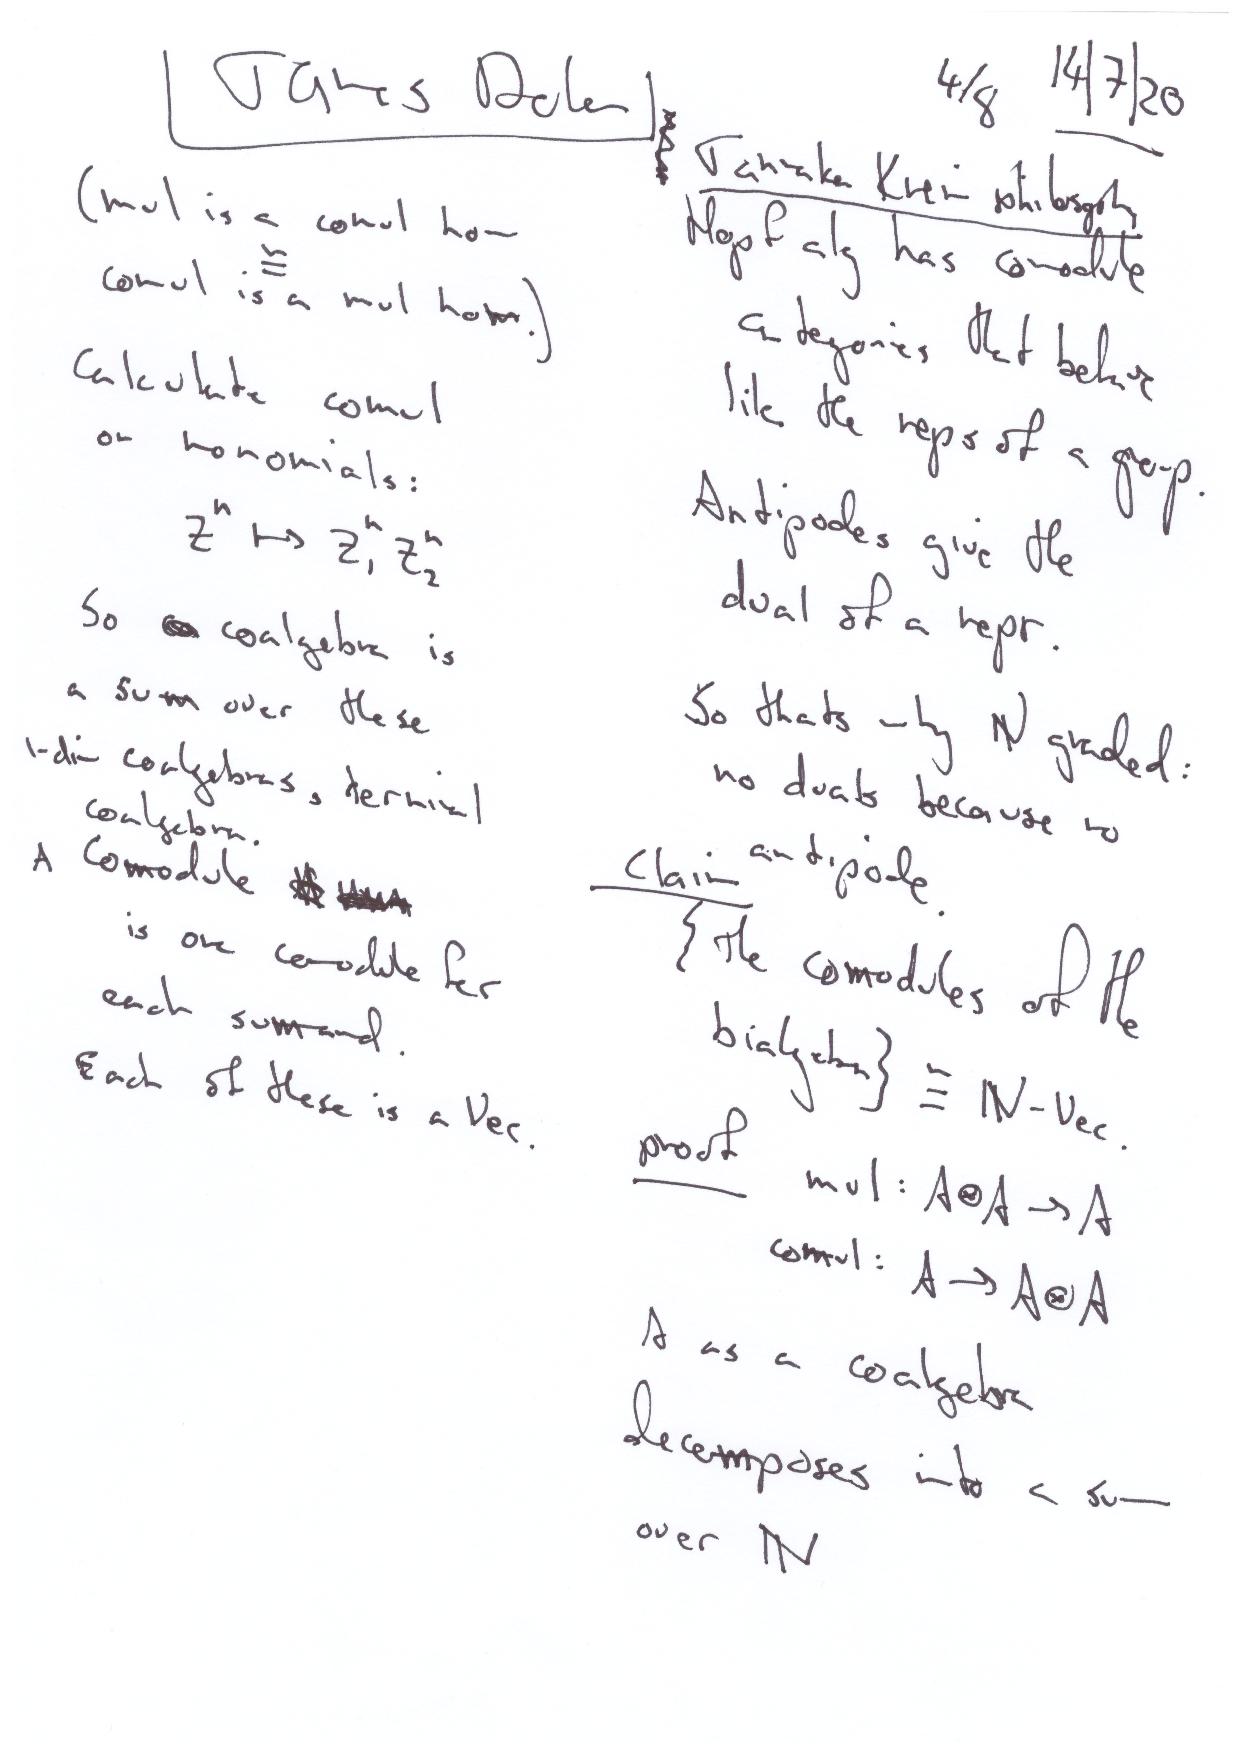 James Dolan
4/8 14/7/20
(mul is a comul hom
≅
comul is a mul hom.)
Calculate comul
on monomials:
zⁿ ↦ z₁ⁿ z₂ⁿ
So coalgebra is
a sum over these
1-dim coalgebras, terminal
coalgebra.
A Comodule
is one comodule for
each summand.
Each of these is a Vec.
Tannaka Krein philosophy
Hopf alg has comodule
categories that behave
like the reps of a group.
Antipodes give the
dual of a repr.
So thats why ℕ graded:
no duals because no
antipode.
Claim
{The comodules of the
bialgebra} ≅ ℕ-Vec.
proof mul: A⊗A → A
comul: A → A⊗A
A as a coalgebra
decomposes into a sum
over ℕ